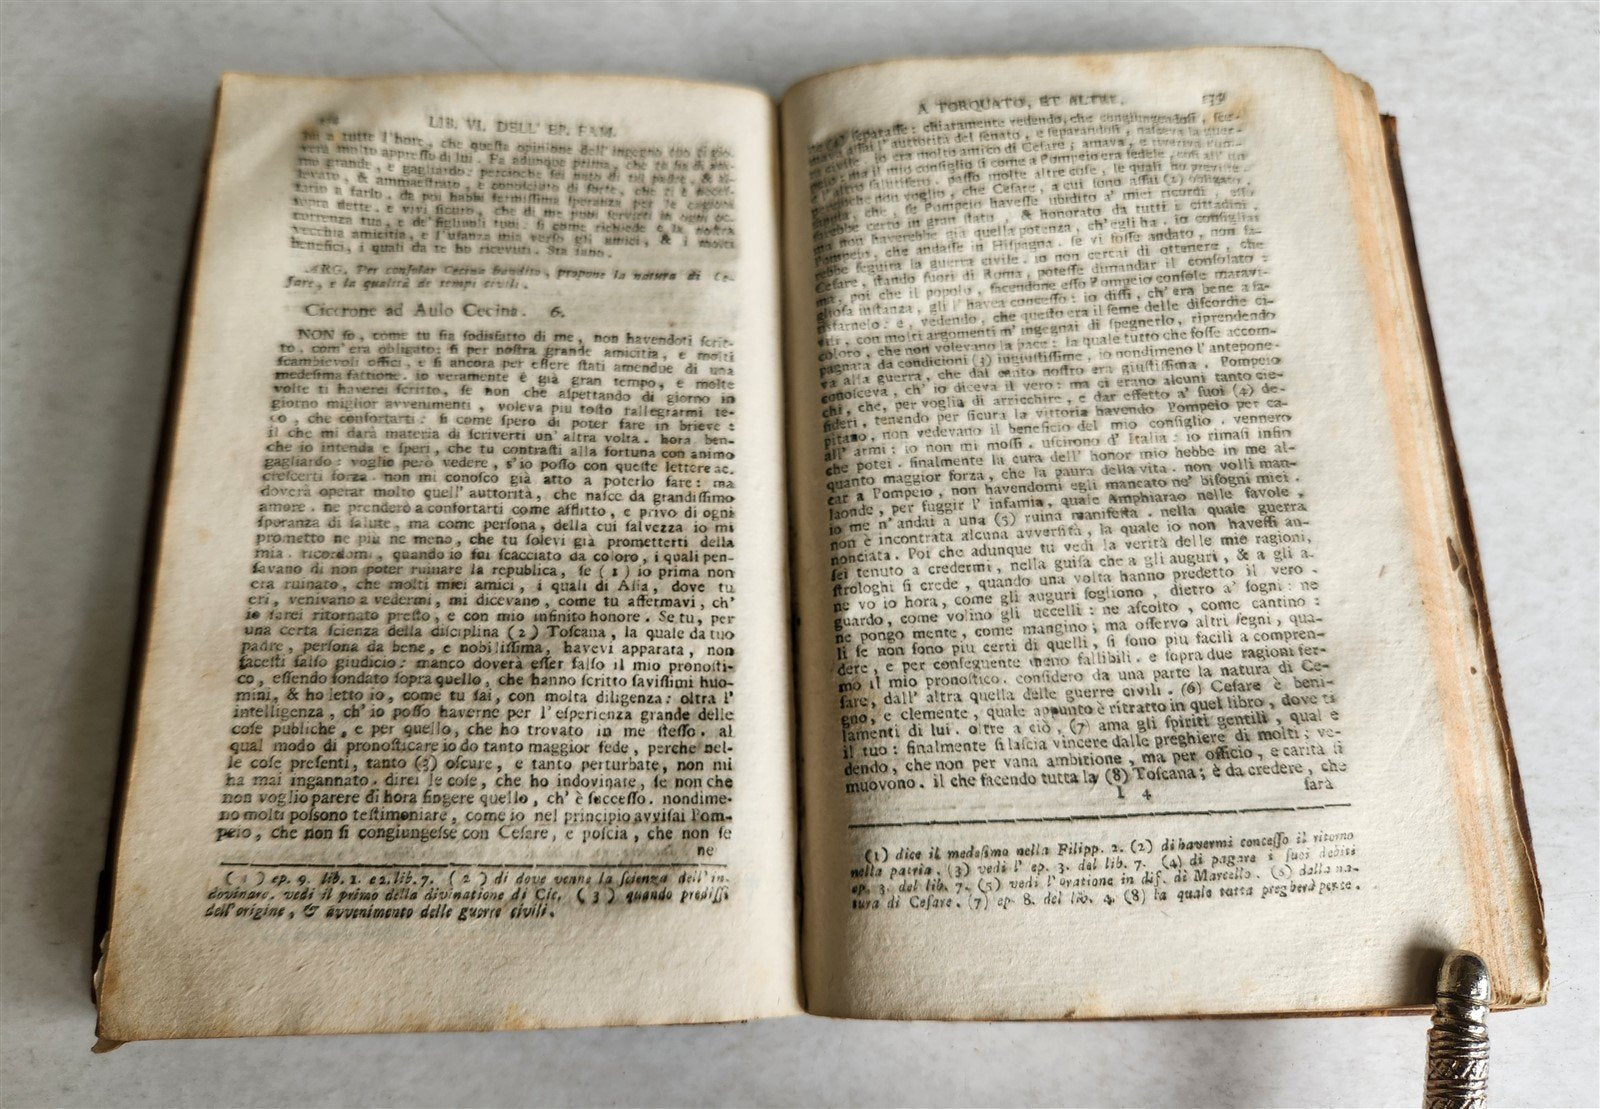 LIB. VI. DELL' EP. FAM.
a tutte l'hore, che questa opinione dell'ingegno tuo ti gio-
verà molto appresso di lui. Fa adunque prima, che tu sia di ani-
mo grande, e gagliardo: percioche sei nato di tal padre, & al-
levato, & ammaestrato, e conosciuto di sorte, che ti è neces-
sario a farlo. da poi habbi fermissima speranza per le cagioni
sopra dette. e vivi sicuro, che di me puoi servirti in ogni oc-
correnza tua, e de' figliuoli tuoi. sì come richiede e la nostra
vecchia amicitia, e l'usanza mia verso gli amici, & i molti
benefici, i quali da te ho ricevuti. Sta sano.
ARG. Per consolar Cecina bandito, propone la natura di Ce-
sare, e la qualità de tempi civili.
Cicerone ad Aulo Cecina. 6.
NON so, come tu sia sodisfatto di me, non havendoti scrit-
to, com'era obligato; sì per nostra grande amicitia, e molti
scambievoli offici, e sì ancora per essere stati amendue di una
medesima fattione. io veramente è già gran tempo, e molte
volte ti haverei scritto, se non che aspettando di giorno in
giorno miglior avvenimenti, voleva piu tosto rallegrarmi te-
co, che confortarti: sì come spero di poter fare in brieve:
il che mi darà materia di scriverti un' altra volta. hora ben-
che io intenda e speri, che tu contrasti alla fortuna con animo
gagliardo: voglio però vedere, s'io posso con queste lettere ac-
crescerti forza. non mi conosco già atto a poterlo fare: ma
doverà operar molto quell' auttorità, che nasce da grandissimo
amore. ne prenderò a confortarti come afflitto, e privo di ogni
speranza di salute, ma come persona, della cui salvezza io mi
prometto ne piu ne meno, che tu solevi già prometterti della
mia. ricordomi, quando io fui scacciato da coloro, i quali pen-
savano di non poter ruinare la republica, se (1) io prima non
era ruinato, che molti miei amici, i quali di Asia, dove tu
eri, venivano a vedermi, mi dicevano, come tu affermavi, ch'
io sarei ritornato presto, e con mio infinito honore. Se tu, per
una certa scienza della disciplina (2) Toscana, la quale da tuo
padre, persona da bene, e nobilissima, havevi apparata, non
facesti falso giudicio: manco doverà esser falso il mio pronosti-
co, essendo fondato sopra quello, che hanno scritto savissimi huo-
mini, & ho letto io, come tu sai, con molta diligenza: oltra l'
intelligenza, ch' io posso haverne per l'esperienza grande delle
cose publiche, e per quello, che ho trovato in me stesso. al
qual modo di pronosticare io do tanto maggior fede, perche nel-
le cose presenti, tanto (3) oscure, e tanto perturbate, non mi
ha mai ingannato. direi le cose, che ho indovinate, se non che
non voglio parere di hora fingere quello, ch' è successo. nondime-
no molti possono testimoniare, come io nel principio avvisai Pom-
peio, che non si congiungesse con Cesare, e poscia, che non se
ne
(1) ep. 9. lib. 1. e 2. lib. 7. (2) di dove venne la scienza dell'in-
dovinare. vedi il primo della divinatione di Cic. (3) quando predissi
dell'origine, & avvenimento delle guerre civili.
A TORQUATO, ET ALTRI. 135
ne (4) separasse: chiaramente vedendo, che congiungendosi, sce-
mava assai l'auttorità del senato, e separandosi, nasceva la guer-
ra civile. io era molto amico di Cesare; amava, e riveriva Pom-
peio: ma il mio consiglio sì come a Pompeio era fedele, così all' un
e l'altro salutifero. passo molte altre cose, le quali ho previste.
percioche non voglio, che Cesare, a cui sono assai (2) obligato,
che, se Pompeio havesse ubidito a' miei ricordi, esso
sarebbe certo in gran stato, & honorato da tutti i cittadini,
ma non haverebbe già quella potenza, ch' egli ha. io consigliai
Pompeio, che andasse in Hispagna. se vi fosse andato, non sa-
rebbe seguita la guerra civile. io non cercai di ottenere, che
Cesare, stando fuori di Roma, potesse dimandar il consolato:
ma, poi che il popolo, facendone esso Pompeio console maravi-
gliosa instanza, gli l' havea concesso: io dissi, ch' era bene a sa-
tisfarnelo: e, vedendo, che questo era il seme delle discordie ci-
vili, con molti argomenti m' ingegnai di spegnerlo, riprendendo
coloro, che non volevano la pace: la quale tutto che fosse accom-
pagnata da condicioni (3) ingiustissime, io nondimeno l' antepone-
va alla guerra, che dal canto nostro era giustissima. Pompeio
conosceva, ch' io diceva il vero: ma ci erano alcuni tanto cie-
chi, che, per voglia di arricchire, e dar effetto a' suoi (4) de-
sideri, tenendo per sicura la vittoria havendo Pompeio per ca-
pitano, non vedevano il beneficio del mio consiglio. vennero
all' armi: io non mi mossi. uscirono d' Italia: io rimasi infin
che potei. finalmente la cura dell' honor mio hebbe in me al-
quanto maggior forza, che la paura della vita. non volli man-
car a Pompeio, non havendomi egli mancato ne' bisogni miei.
laonde, per fuggir l' infamia, quale Amphiarao nelle favole,
io me n' andai a una (5) ruina manifesta. nella quale guerra
non è incontrata alcuna avversità, la quale io non havessi an-
nonciata. Poi che adunque tu vedi la verità delle mie ragioni,
sei tenuto a credermi, nella guisa che a gli auguri, & a gli a-
strologhi si crede, quando una volta hanno predetto il vero.
ne vo io hora, come gli auguri sogliono, dietro a' sogni: ne
guardo, come volino gli uccelli: ne ascolto, come cantino:
ne pongo mente, come mangino; ma osservo altri segni, qua-
li se non sono piu certi di quelli, sì sono piu facili a compren-
dere, e per conseguente meno fallibili. e sopra due ragioni fer-
mo il mio pronostico. considero da una parte la natura di Ce-
sare, dall' altra quella delle guerre civili. (6) Cesare è beni-
gno, e clemente, quale appunto è ritratto in quel libro, dove ti
lamenti di lui. oltre a ciò, (7) ama gli spiriti gentili, qual e
il tuo: finalmente si lascia vincere dalle preghiere di molti; ve-
dendo, che non per vana ambitione, ma per officio, e carità si
muovono. il che facendo tutta la (8) Toscana; è da credere, che
I 4 sarà
(1) dice il medesimo nella Filipp. 2. (2) di havermi concesso il ritorno
nella patria. (3) vedi l' ep. 3. del lib. 7. (4) di pagare i suoi debiti
ep. 3. del lib. 7. (5) vedi l'oratione in dif. di Marcello. (6) dalla na-
tura di Cesare. (7) ep 8. del lib. 4. (8) la quale tutta pregherà per te.